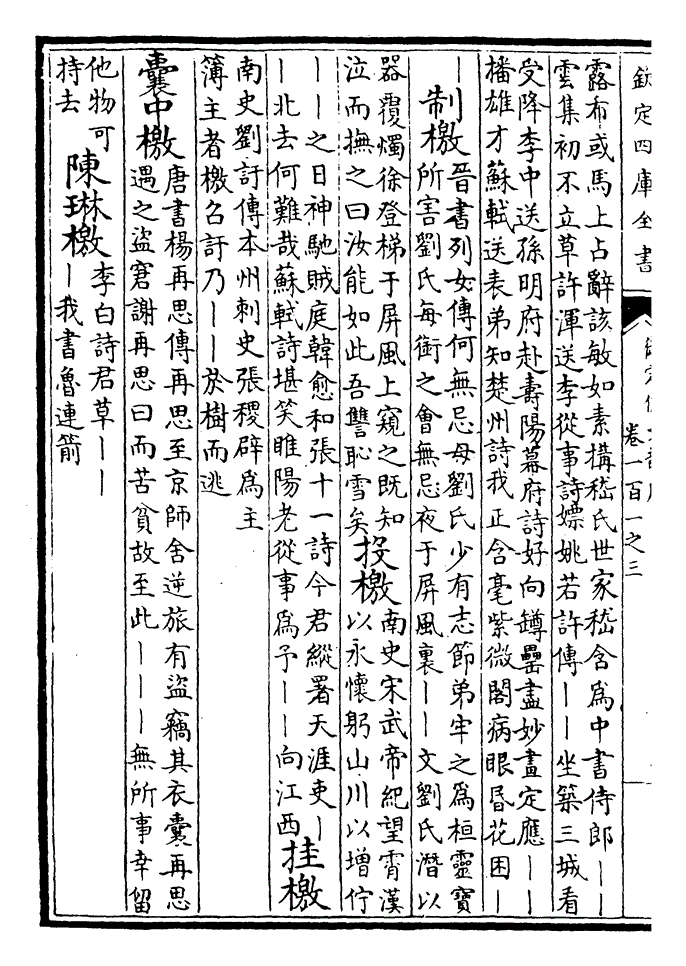 欽定四庫全書
卷一百一之三
露布或馬上占辭該敏如素搆嵇氏世家嵇含為中書侍郎丨丨
雲集初不立草許渾送李從事詩嫖姚若許傳丨丨坐築三城看
受降李中送孫明府赴壽陽幕府詩好向罇罍盡妙畫定應丨丨
播雄才蘇軾送表弟知楚州詩我正含毫紫微閣病眼昏花困丨
丨
制檄
晉書列女傳何無忌母劉氏少有志節弟牢之為桓靈寶
所害劉氏每銜之會無忌夜于屏風裏丨丨文劉氏潛以
器覆燭徐登梯于屏風上窺之既知
泣而撫之曰汝能如此吾讐恥雪矣
投檄
南史宋武帝紀望霄漢
以永懷躬山川以增佇
丨丨之日神馳賊庭韓愈和張十一詩今君縱署天涯吏丨
丨北去何難哉蘇軾詩堪笑睢陽老從事為予丨丨向江西
挂檄
南史劉訏傳本州刺史張稷辟為主
簿主者檄召訏乃丨丨於樹而逃
囊中檄
唐書楊再思傳再思至京師舍逆旅有盜竊其衣囊再思
遇之盜窘謝再思曰而苦貧故至此丨丨丨無所事幸留
他物可
持去
陳琳檄
李白詩君草丨丨
丨我書魯連箭